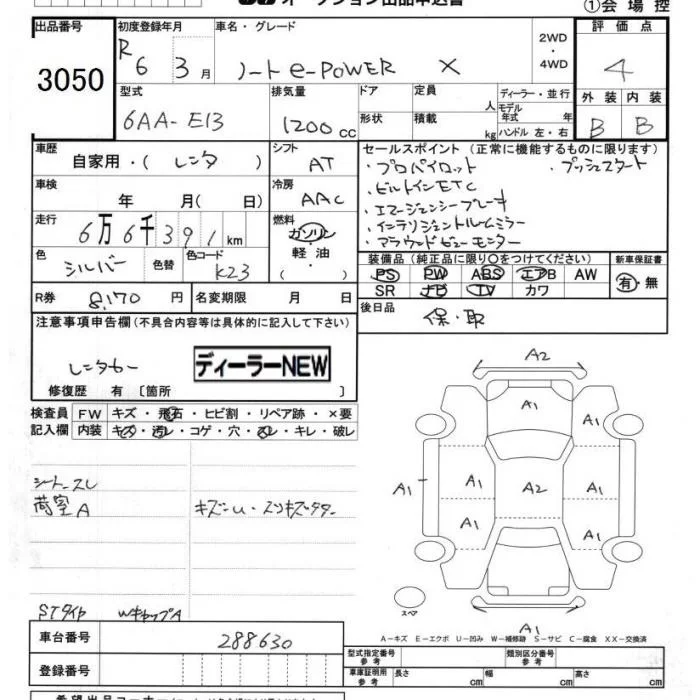 オークション出品申込書
①会場控
出品番号 初度登録年月 車名・グレード 2WD・4WD 評価点
3050 R6 3月 ノート e-POWER X 4
型式 排気量 ドア 定員 人 ディーラー・並行 外装 内装
6AA-E13 1200cc 形状 積載 kg モデル年式 年 ハンドル 左・右 B B
車歴 自家用・( レンタ ) シフト AT セールスポイント (正常に機能するものに限ります)
・プロパイロット ・プッシュスタート
車検 年 月( 日) 冷房 AAC ・ビルトインETC
・エマージェンシーブレーキ
走行 6万6千391km 燃料 ガソリン ・インテリジェントルームミラー
軽油 ・アラウンドビューモニター
色 シルバー 色替 色コード K23 ( ) 装備品 (純正品に限り○をつけてください) 新車保証書
PS PW ABS エアB AW 有・無
SR ナビ TV カワ
R券 8,170円 名変期限 月 日 後日品 保・取
注意事項申告欄(不具合内容等は具体的に記入して下さい)
レンタカー ディーラーNEW
修復歴 有 [箇所 ]
検査員 FW キズ・飛石・ヒビ割・リペア跡・×要
記入欄 内装 キズ・汚レ・コゲ・穴・スレ・キレ・破レ
シートスレ
荷室A キズ～U・スリキズ
STタイヤ WキャップA
A2
A1
A1 A1
A1 A2 A1
A1 A1
スペア
A1
A－キズ E－エクボ U－凹み W－補修跡 S－サビ C－腐食 XX－交換済
車台番号 288630
型式指定番号 参考 類別区分番号 参考
登録番号 車庫証明用 参考 長さ cm 幅 cm 高さ cm